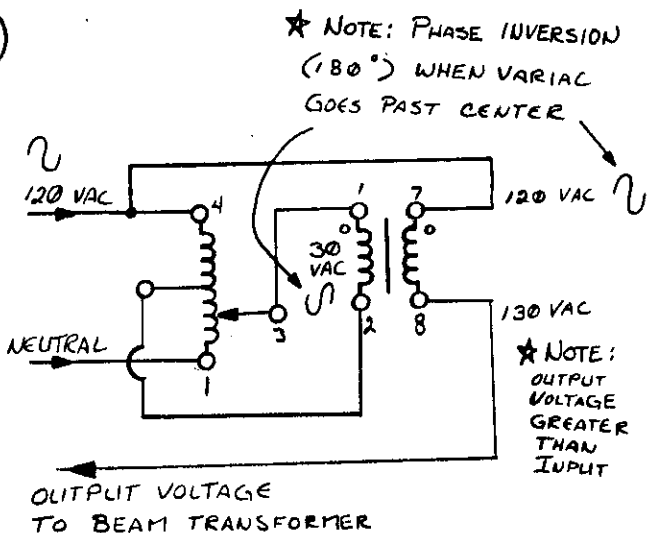 )
★ NOTE: PHASE INVERSION
(180°) WHEN VARIAC
GOES PAST CENTER
120 VAC
4
1
7
120 VAC
30
VAC
3
2
8
130 VAC
NEUTRAL
1
★ NOTE:
OUTPUT
VOLTAGE
GREATER
THAN
INPUT
OUTPUT VOLTAGE
TO BEAM TRANSFORMER